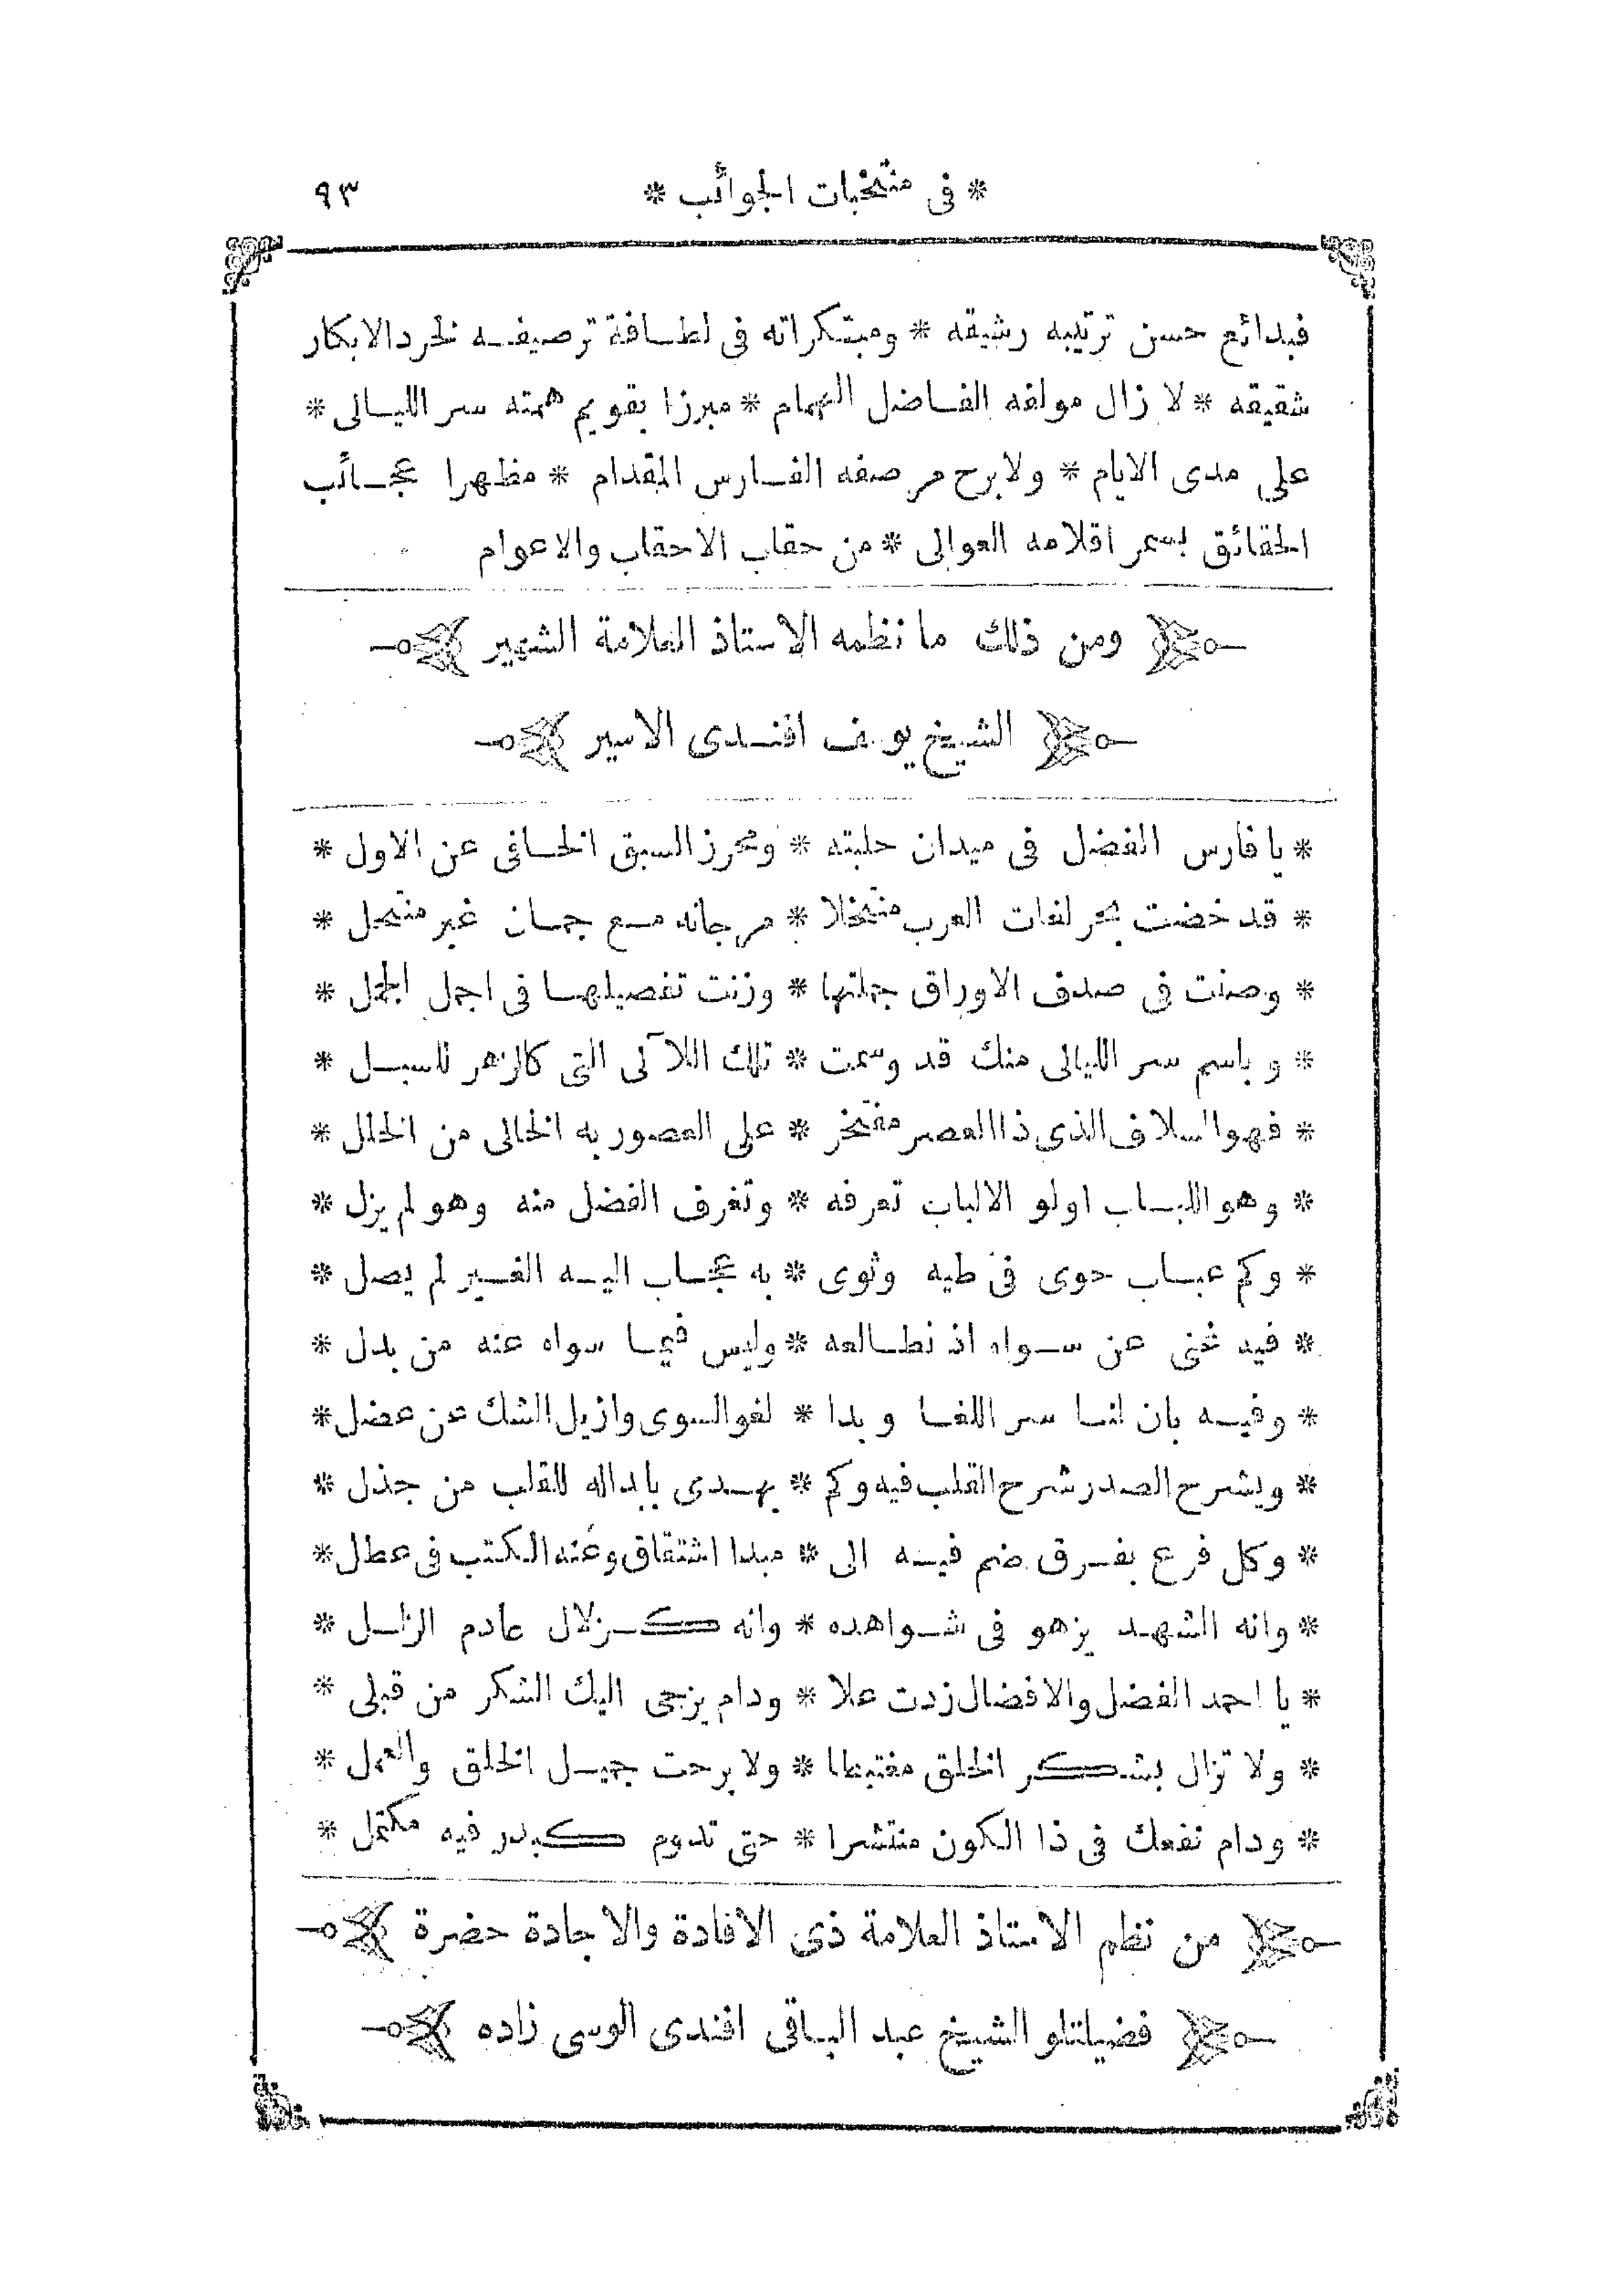 * فى منتخبات الجوائب * ٩٣
فبدائع حسن ترتيبه رشيقه * ومبتكراته فى لطافة ترصيفه لخرد الابكار
شقيقه * لا زال مولفه الفاضل الهمام * مبرزا بقويم همته سر الليالى *
على مدى الايام * ولا برح مرصفه الفارس المقدام * مظهرا عجائب
الحقائق بسمر اقلامه العوالى * من حقاب الاحقاب والاعوام
ومن ذلك ما نظمه الاستاذ العلامة الشهير
الشيخ يوسف افندى الاسير
* يا فارس الفضل فى ميدان حلبته * ومحرز السبق الخافى عن الاول *
* قد خضت بحر لغات العرب منتخلا * مرجانه مع جمان غير منتحل *
* وصنت فى صدف الاوراق جملتها * وزنت تفصيلها فى اجمل الجمل *
* وباسم سر الليالى منك قد وسمت * تلك اللآلى التى كالزهر للسبل *
* فهوالسلاف الذى ذا العصر مفتخر * على العصور به الخالى من الخلل *
* وهو اللباب اولو الالباب تعرفه * وتغرف الفضل منه وهو لم يزل *
* وكم عباب حوى فى طيه وثوى * به عجاب اليه الغير لم يصل *
* فيه غنى عن سواه اذ نطالعه * وليس فيما سواه عنه من بدل *
* وفيه بان لنا سر اللغا وبدا * لغو السوى وازيل الشك عن عضل *
* ويشرح الصدر شرح القلب فيه وكم * يهدى بابداله للقلب من جذل *
* وكل فرع بفرق ضم فيه الى * مبدا اشتقاق وعنه الكتب فى عطل *
* وانه الشهد يزهو فى شواهده * وانه كزلال عادم الزلل *
* يا احمد الفضل والافضال زدت علا * ودام يزجى اليك الشكر من قبلى *
* ولا تزال بشكر الخلق مغتبطا * ولا برحت جميل الخلق والعمل *
* ودام نفعك فى ذا الكون منتشرا * حتى تدوم كبدر فيه مكتمل *
من نظم الاستاذ العلامة ذى الافادة والاجادة حضرة
فضيلتلو الشيخ عبد الباقى افندى الوسى زاده